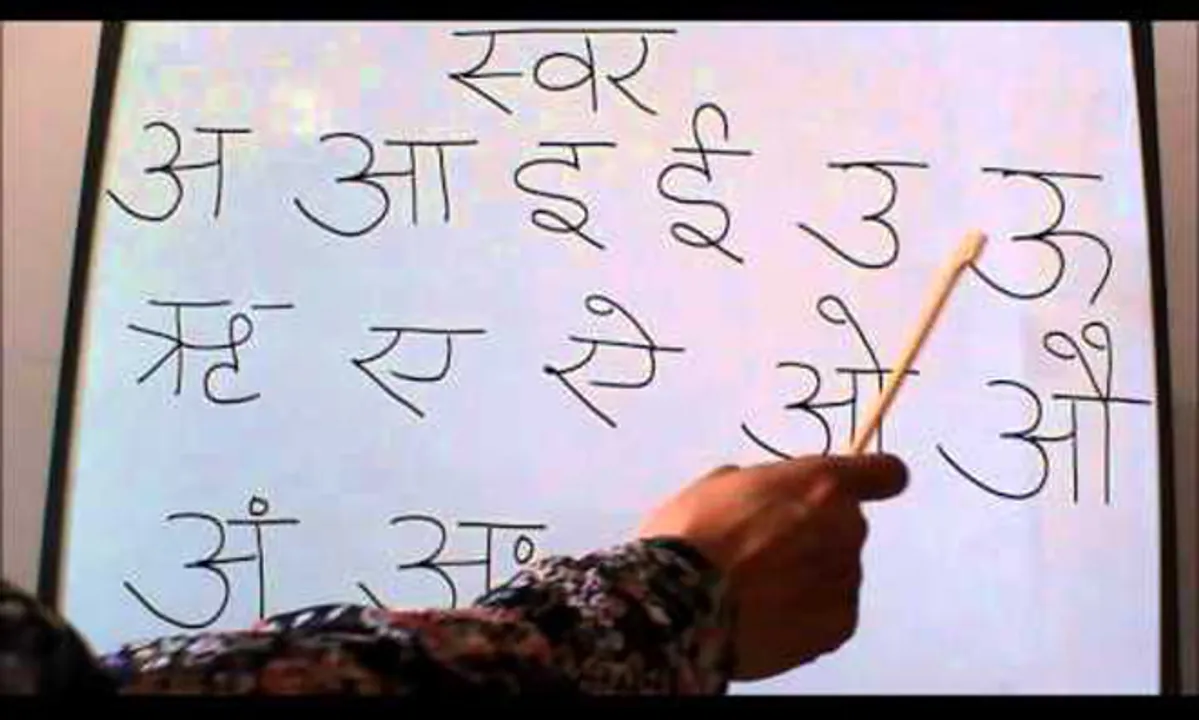 स्वर
अ आ इ ई उ ऊ
ऋ ए ऐ ओ औ
अं अः